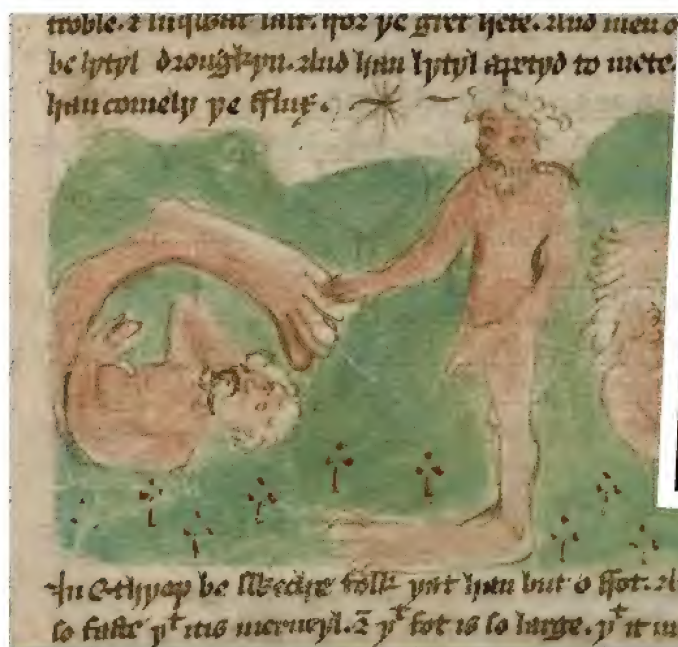 troble. & sumwhat salt. ffor þe gret hete. And men o
be lytyl drougkyn. And han lytyl apetyd to mete.
han comely þe fflux.
In Ethyop be sweche folk þat han but o ffot. A
so faste þᵗ itis merueyl. & þᵗ fot is so large. þᵗ it